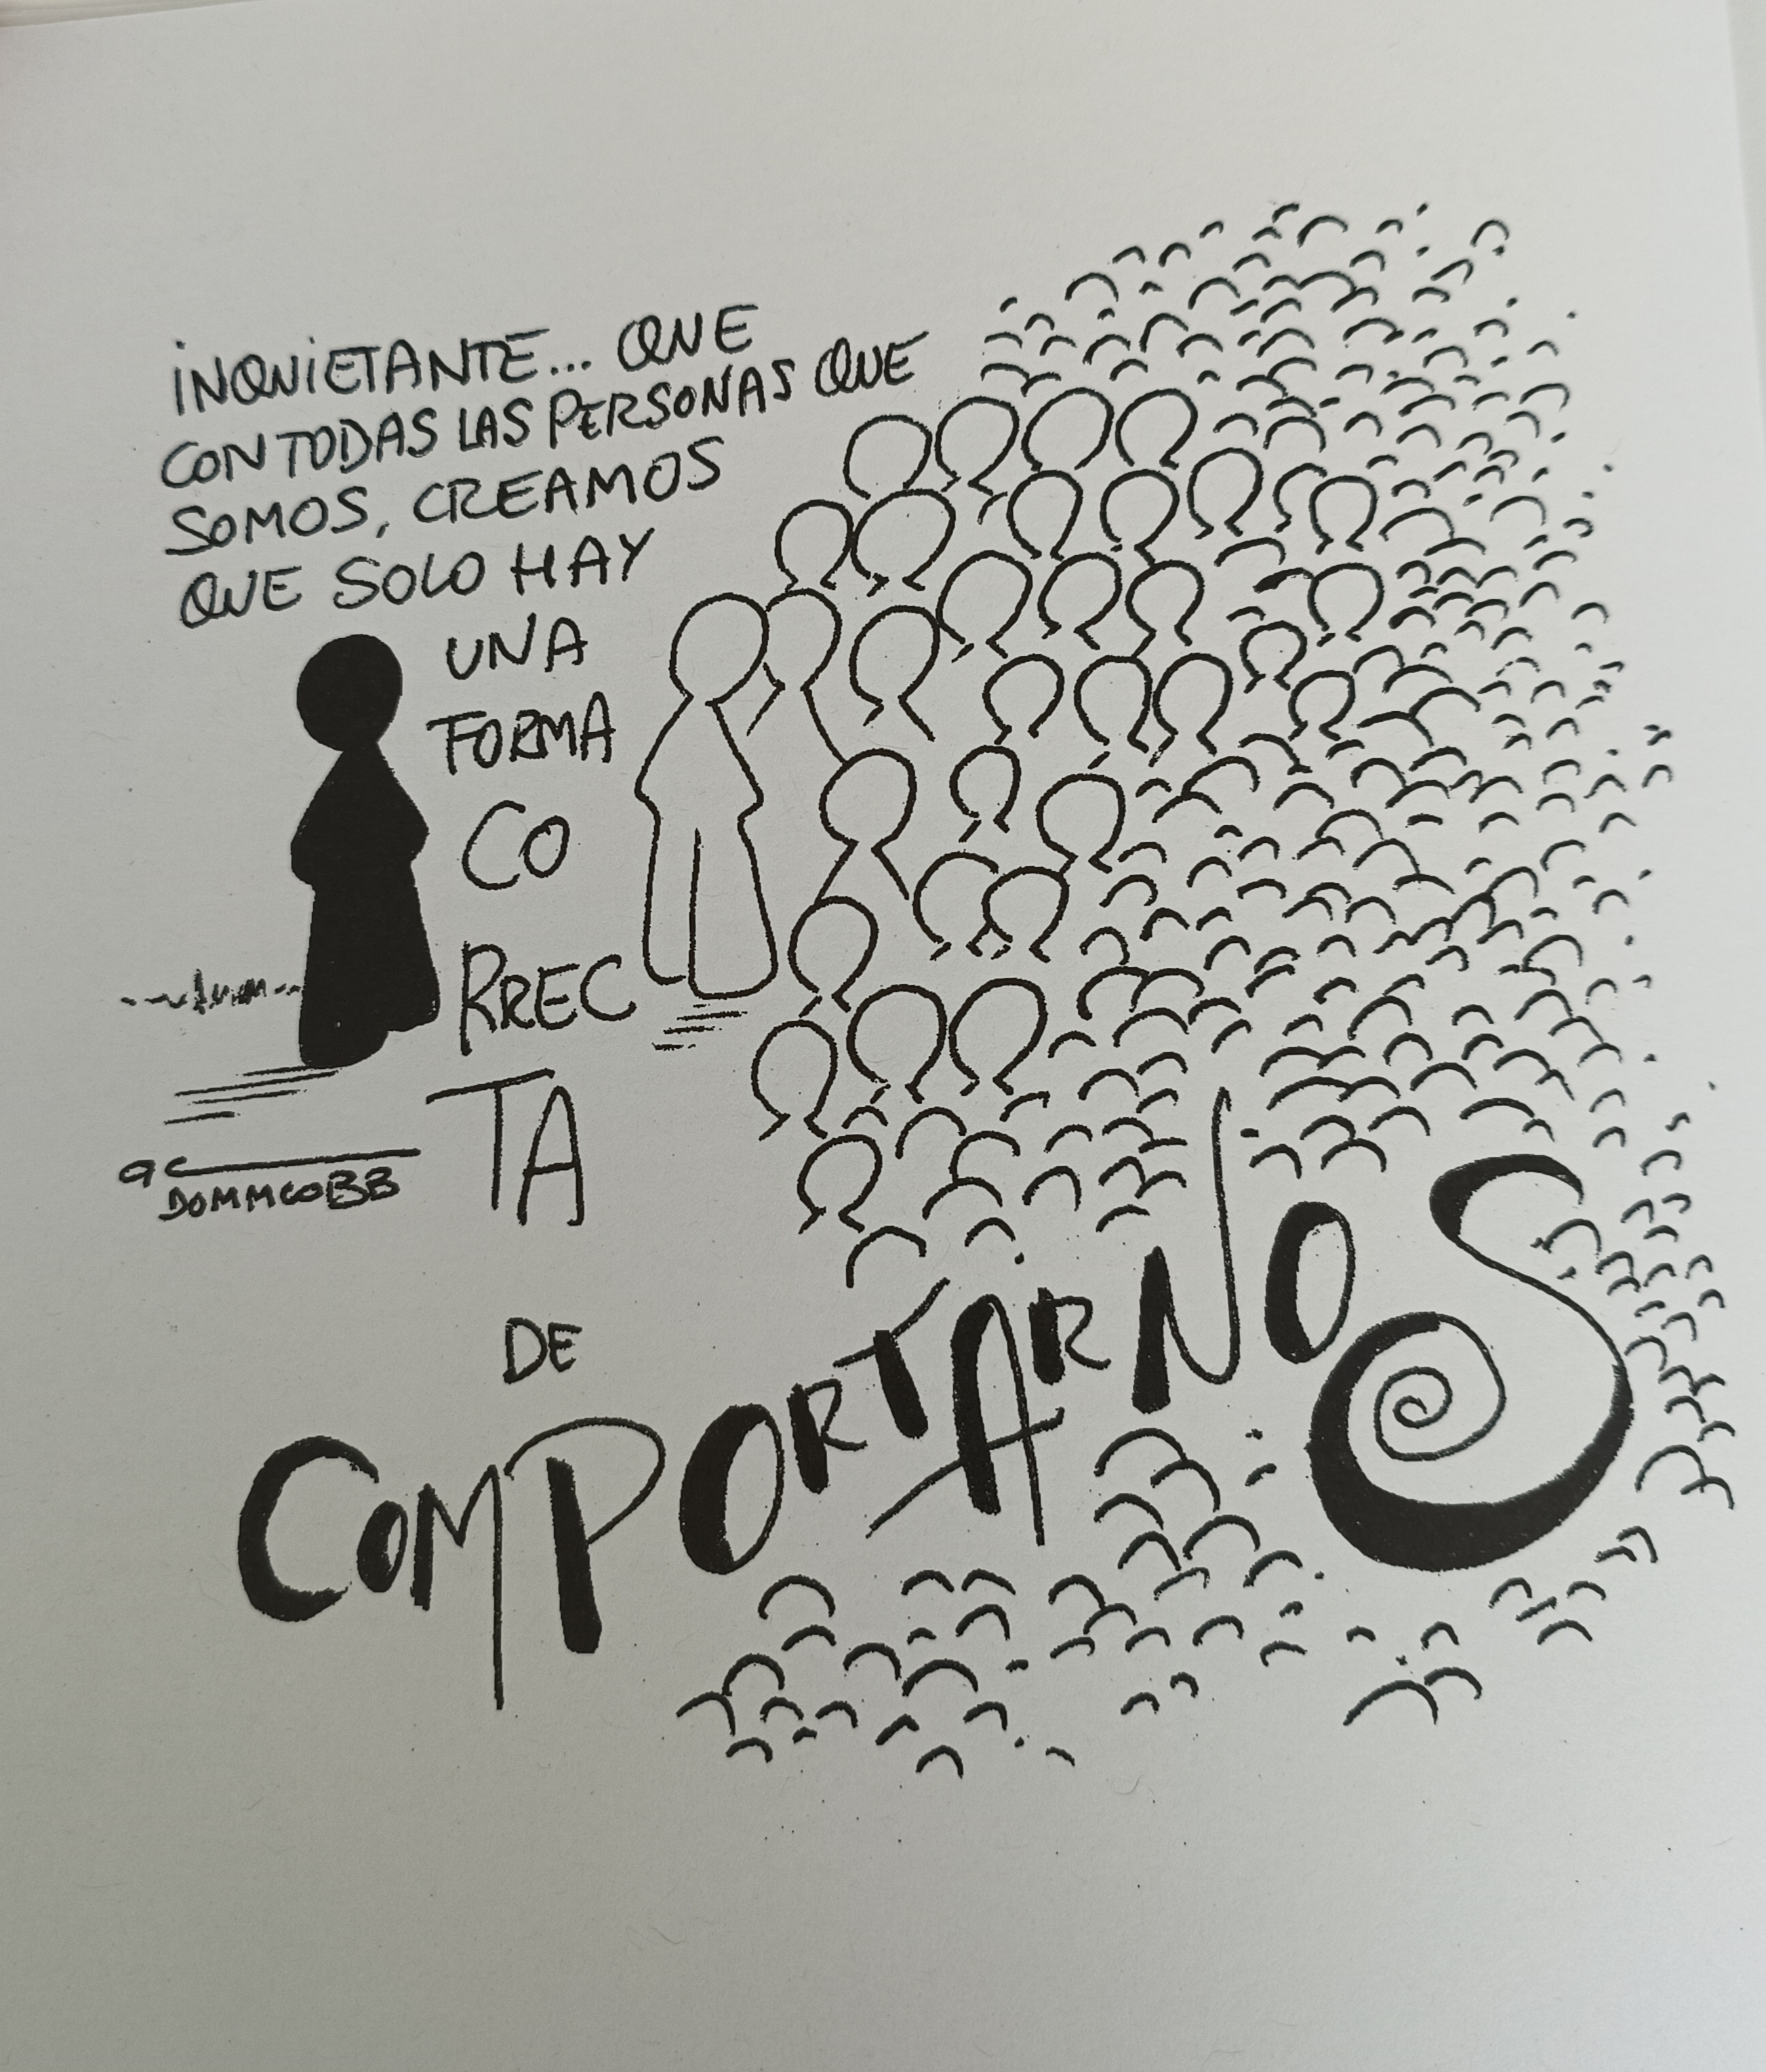 INQUIETANTE... QUE
CON TODAS LAS PERSONAS QUE
SOMOS, CREAMOS
QUE SOLO HAY
UNA
FORMA
CO
RREC
TA
DE
COMPORTARNOS
DOMMCOBB